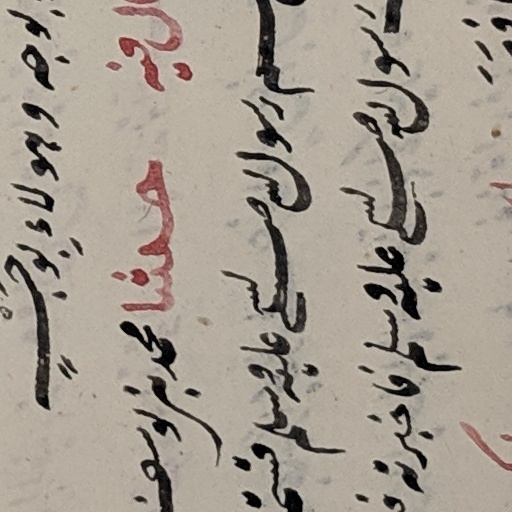 بوجه وهولاءِ بوجهٍ
ال فيه حدثنا محمد بن يوسف
سم رسول الله صلى الله عليه وسلم قسمة
رسول الله صلى الله عليه وسلم فاخبرته ف